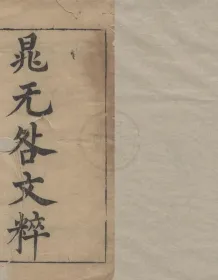 晁无咎文粹